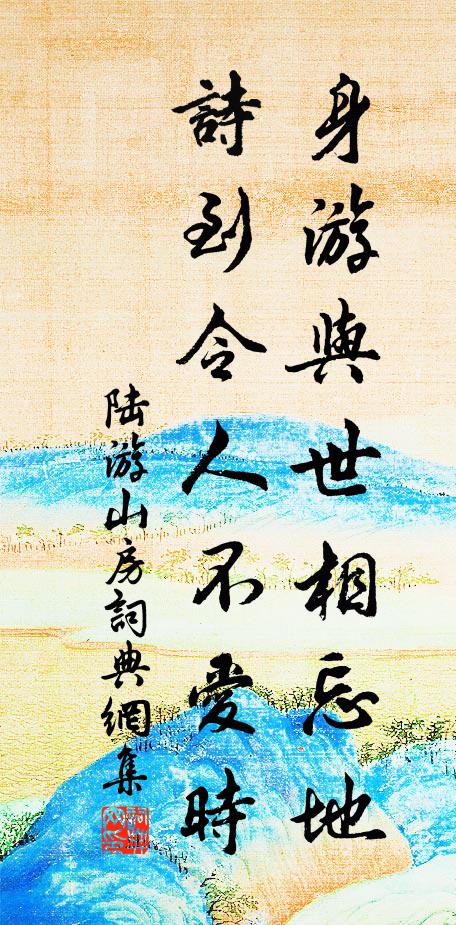 身游與世相忘地
詩到令人不愛時
陆游山房詞典網集